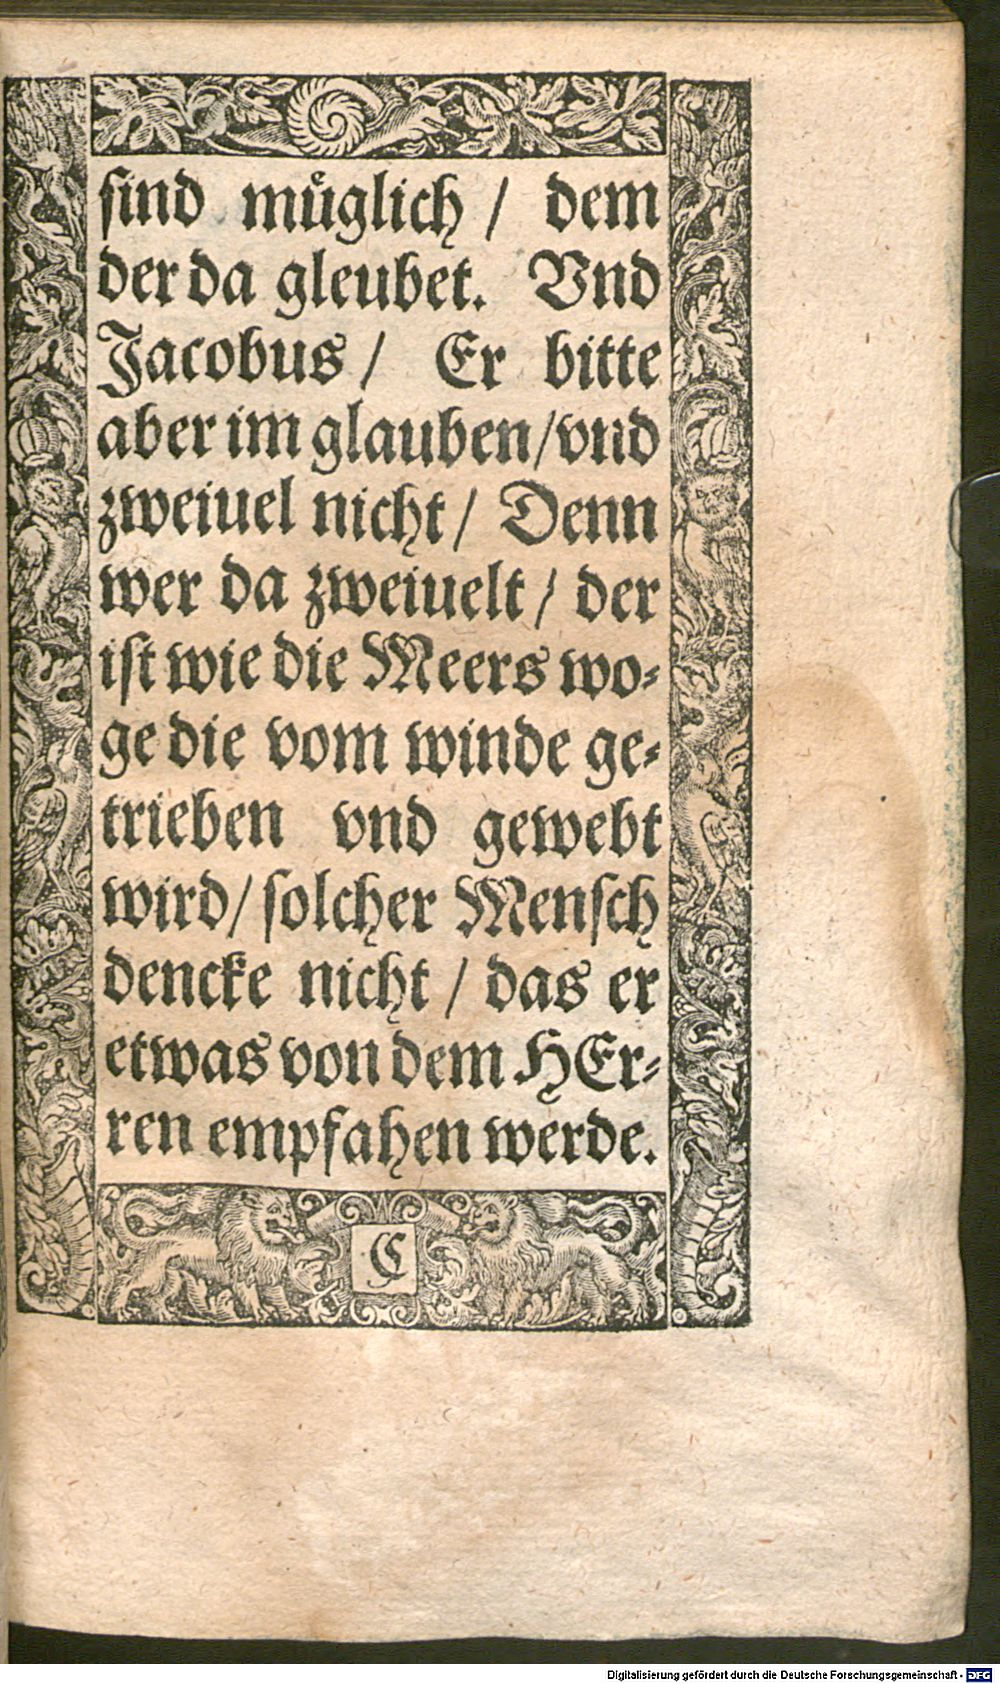 sind muͤglich / dem
der da gleubet. Vnd
Jacobus / Er bitte
aber im glauben / vnd
zweiuel nicht / Denn
wer da zweiuelt / der
ist wie die Meers wo⸗
ge die vom winde ge⸗
trieben vnd gewebt
wird / solcher Mensch
dencke nicht / das er
etwas von dem HEr⸗
ren empfahen werde.
C
Digitalisierung gefördert durch die Deutsche Forschungsgemeinschaft - DFG